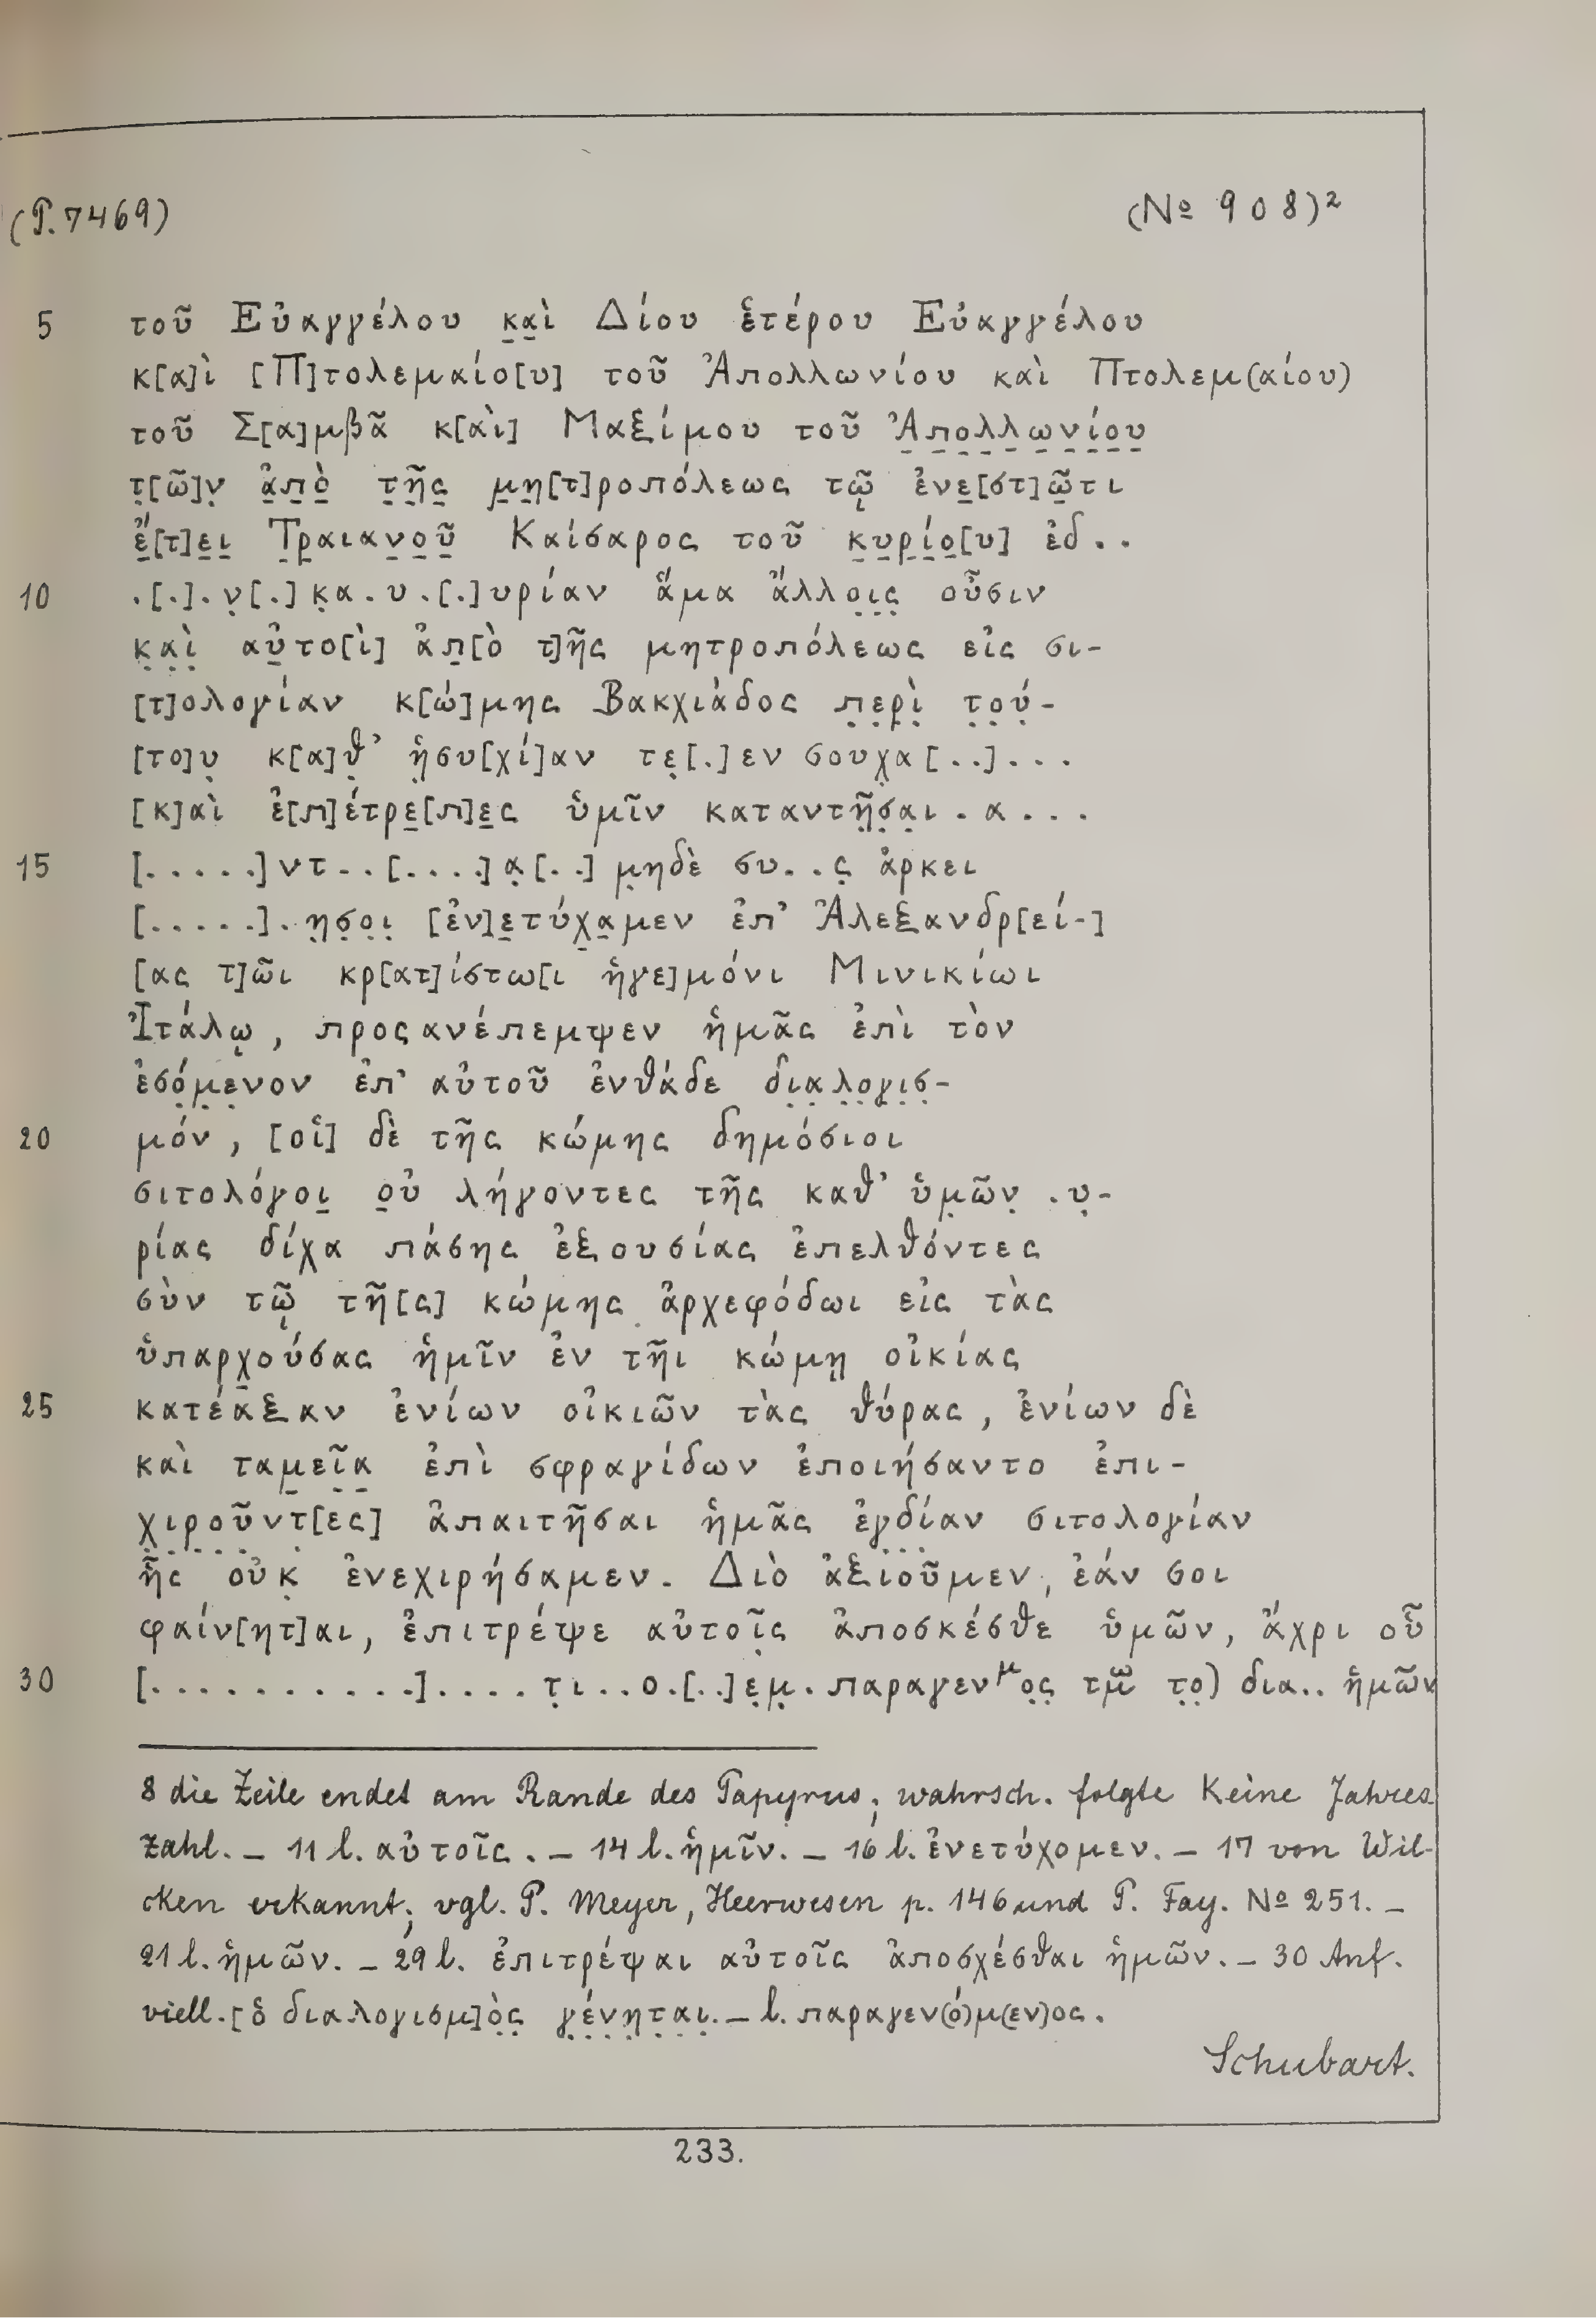 (P. 7469) (No 908)²
5 τοῦ Εὐαγγέλου κ̣α̣ὶ Δίου ἑτέρου Εὐαγγέλου
κ[α]ὶ [Π]τολεμαίο[υ] τοῦ Ἀπολλωνίου καὶ Πτολεμ(αίου)
τοῦ Σ[α]μβᾶ κ[αὶ] Μαξίμου τοῦ Ἀ̣π̣ο̣λ̣λ̣ω̣ν̣ί̣ο̣υ̣
τ̣[ῶ]ν̣ ἀ̣π̣ὸ̣ τ̣ῆ̣ς̣ μ̣η̣[τ]ροπόλεως τῷ ἐνε̣[στ]ῶ̣τι
ἔ̣[τ]ε̣ι̣ Τ̣ρ̣αιαν̣ο̣ῦ̣ Καίσαρος τοῦ κ̣υ̣ρ̣ί̣ο̣[υ] ἐδ..
10 .[.].ν̣[.]κ̣α.υ.[.]υρίαν ἅμα ἄλλο̣ι̣ς̣ οὖσιν
κ̣α̣ὶ̣ αὐ̣το[ὶ] ἀπ̣[ὸ τ]ῆς μητροπόλεως εἰς σι-
[τ]ολογίαν κ[ώ]μης Βακχιάδος π̣ε̣ρ̣ὶ̣ τ̣ο̣ύ̣-
[το]υ̣ κ[α]θ̣’ ἡ̣συ[χί]αν τε̣[.]εν σουχ̣α[..]...
[κ]αὶ ἐ[π]έτρε̣[π]ε̣ς ὑμῖν καταντῆ̣σ̣α̣ι.α...
15 [.....]ντ..[....]α̣[..] μ̣ηδὲ συ..ς̣ ἀρκει
[.....].η̣σ̣ο̣ι̣ [ἐν]ε̣τύχ̣α̣μεν ἐπ’ Ἀλεξανδρ[εί-]
[ας τ]ῶι κρ[ατ]ίστω[ι ἡγε]μόνι Μινικίωι
Ἰτάλῳ, προςανέπεμψεν ἡμᾶς ἐπὶ τὸν
ἐσό̣μ̣ε̣νον ἐπ’ αὐτοῦ ἐνθάδε δι̣α̣λ̣ο̣γ̣ι̣σ̣-
20 μόν, [οἱ] δὲ τῆς κώμης δημόσιοι
σιτολόγοι̣ ο̣ὐ λήγοντες τῆς καθ’ ὑμ̣ῶν̣ .υ̣-
ρίας δίχα πάσης ἐξουσίας ἐπελθόντες
σὺν τῷ τῆ[ς] κώμης ἀρχεφόδωι εἰς τὰς
ὑπαρχ̣ούσας ἡμῖν ἐν τῆι κώμῃ οἰκίας
25 κατέαξαν ἐνίων οἰκιῶν τὰς θύρας, ἐνίων δὲ
καὶ ταμ̣εῖ̣α̣ ἐπὶ σφραγίδων ἐποιήσαντο ἐπι-
χ̣ι̣ρ̣ο̣ῦ̣ντ̣[ες] ἀπαιτῆσαι ἡμᾶς ἐγ̣δ̣ί̣αν σιτολογίαν
ἧς οὐκ̣ ἐνεχιρήσαμεν. Διὸ ἀξιοῦμεν, ἐάν σοι
φαίν[ητ]αι, ἐπιτρέψε αὐτοῖ̣ς ἀποσκέσθε ὑμῶν, ἄχρι οὗ
30 [...........]....τ̣ι..ο.[..]ε̣μ̣. παραγενμο̣ς̣ τμω τ̣ο̣) δια.. ἡμῶν
8 die Zeile endet am Rande des Papyrus; wahrsch. folgte keine Jahres
zahl. – 11 l. αὐτοῖς. – 14 l. ἡμῖν. – 16 l. ἐνετύχομεν. – 17 von Wil-
cken erkannt; vgl. P. Meyer, Heerwesen p. 146 und P. Fay. No 251. –
21 l. ἡμῶν. – 29 l. ἐπιτρέψαι αὐτοῖς ἀποσχέσθαι ἡμῶν. – 30 Anf.
viell. [ὁ διαλογισμ]ὸ̣ς̣ γ̣έ̣ν̣η̣τ̣α̣ι̣. – l. παραγεν(ό)μ(εν)ος.
Schubart.
233.